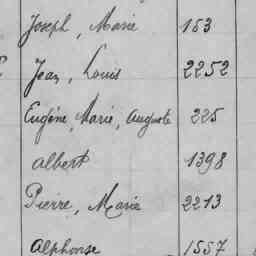 Joseph, Marie 153
Jean, Louis 2252
Eugène, Marie, Auguste 225
Albert 1398
Pierre, Marie 2213
Alphonse 1557